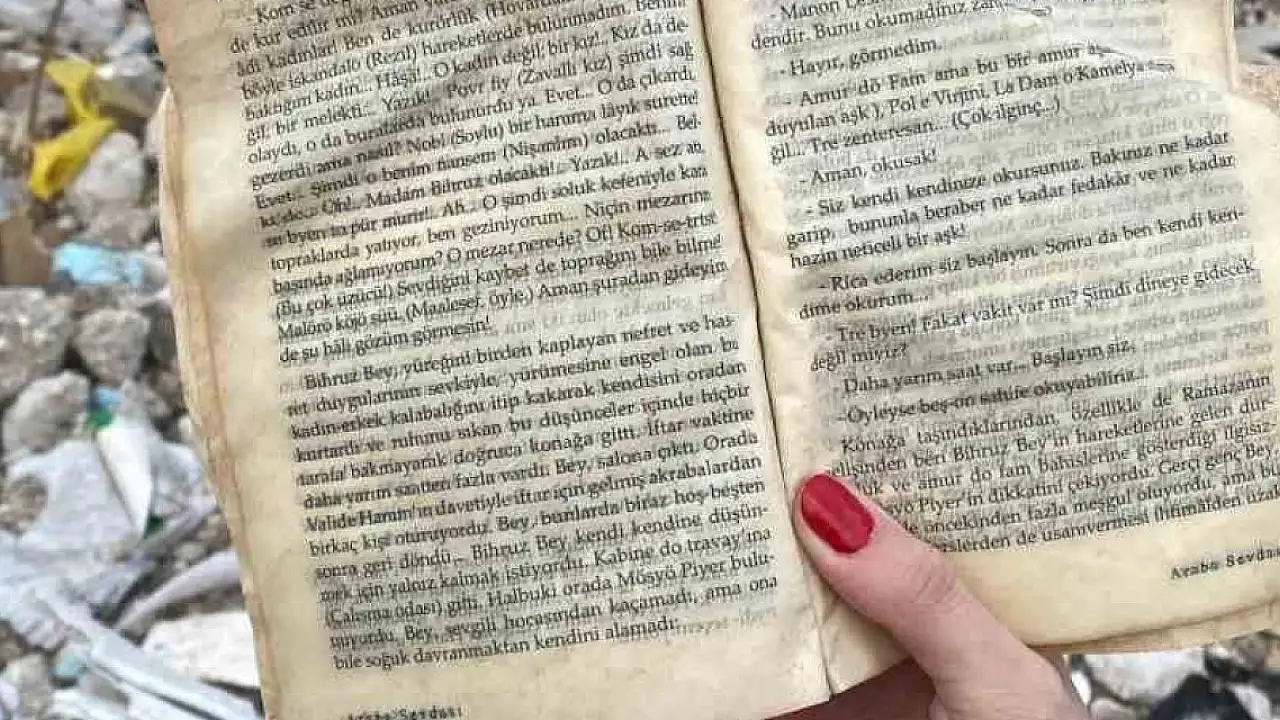 de kur edilir mi? Aman
âdi kadınlar! Ben de kürörlük (Hovardalık)
böyle iskandalo (Rezil) hareketlerde bulunmadım. Benim
baktığım kadın... Hâşâ!.. O kadın değil, bir kız!.. Kız da de-
ğil, bir melekti... Yazık!.. Povr fiy (Zavallı kız) şimdi sağ
olaydı, o da buralarda bulunurdu ya. Evet... O da çıkardı,
gezerdi ama nasıl? Nobl (Soylu) bir hanıma lâyık surette!
Evet... Şimdi o benim fiansem (Nişanlım) olacaktı... Bel-
Oh!.. Madam Bihruz olacaktı!.. Yazık!.. A sez an,
Ah... O şimdi soluk kefeniyle kara
topraklarda yatıyor, ben geziniyorum... Niçin mezarının
başında ağlamıyorum? O mezar nerede? Of! Kom-se-trist
(Bu çok üzücü!) Sevdiğini kaybet de toprağını bile bilme!
Malörö köjö süü, (Maalesef, öyle.) Aman şuradan gideyim
de şu hâli gözüm görmesin!
Bihruz Bey, yüreğini birden kaplayan nefret ve has-
ret duygularının sevkiyle, yürümesine engel olan bu
kadın-erkek kalabalığını itip kakarak kendisini oradan
kurtardı ve ruhunu sıkan bu düşünceler içinde hiçbir
tarafa bakmayarak doğruca konağa gitti. İftar vaktine
daha yarım saatten fazla vardı. Bey, salona çıktı. Orada
Valide Hanım'ın davetiyle iftar için gelmiş akrabalardan
birkaç kişi oturuyordu. Bey, bunlarda biraz hoş-beşten
sonra geri döndü.- Bihruz Bey, kendi kendine düşün-
mek için yalnız kalmak istiyordu. Kabine do travay'ına
(Çalışma odası) gitti. Halbuki orada Mösyö Piyer bulu-
nuyordu. Bey, sevgili hocasından kaçamadı, ama ona
bile soğuk davranmaktan kendini alamadı:
Araba Sevdası
- Manon
dendir. Bunu okumadınız
- Hayır, görmedim.
- Amur dö Fam ama bu bir amur
duyulan aşk), Pol e Virjini, La Dam o Kamelya
gil... Tre zenteresan... (Çok ilginç...)
- Aman, okusak!
- Siz kendi kendinize okursunuz. Bakınız ne kadar
garip, bununla beraber ne kadar fedakâr ve ne kadar
hazin neticeli bir aşk!
- Rica ederim siz başlayın. Sonra da ben kendi ken-
dime okurum...
- Tre byen! Fakat vakit var mı? Şimdi dineye gidecek
değil miyiz?
- Daha yarım saat var... Başlayın siz.
- Öyleyse beş-on sahife okuyabiliriz.
Konağa taşındıklarından, özellikle de Ramazanın
gelişinden beri Bihruz Bey'in hareketlerine gelen dur-
ve amur do fam bahislerine gösterdiği ilgisiz-
Piyer'in dikkatini çekiyordu. Gerçi genç Bey
öncekinden fazla meşgul oluyordu, ama bu
derslerden de usanvermesi (ihtimalden uzak
Araba Sevdası